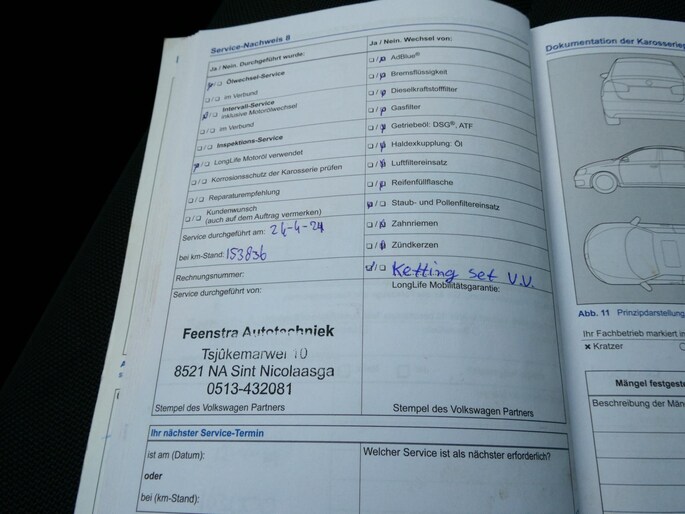 Service-Nachweis 8
Ja / Nein. Durchgeführt wurde:
Ölwechsel-Service
im Verbund
Intervall-Service
inklusive Motorölwechsel
im Verbund
Inspektions-Service
LongLife Motoröl verwendet
Korrosionsschutz der Karosserie prüfen
Reparaturempfehlung
Kundenwunsch
(auch auf dem Auftrag vermerken)
Service durchgeführt am: 24-4-24
bei km-Stand: 153836
Rechnungsnummer:
Service durchgeführt von:
Feenstra Autotechniek
Tsjûkemarwei 10
8521 NA Sint Nicolaasga
0513-432081
Stempel des Volkswagen Partners
Ja / Nein. Wechsel von:
AdBlue®
Bremsflüssigkeit
Dieselkraftstofffilter
Gasfilter
Getriebeöl: DSG®, ATF
Haldexkupplung: Öl
Luftfiltereinsatz
Reifenfüllflasche
Staub- und Pollenfiltereinsatz
Zahnriemen
Zündkerzen
Ketting set V.V.
LongLife Mobilitätsgarantie:
Stempel des Volkswagen Partners
Ihr nächster Service-Termin
ist am (Datum):
oder
bei (km-Stand):
Welcher Service ist als nächster erforderlich?
Dokumentation der Karosserie
Abb. 11 Prinzipdarstellung
Ihr Fachbetrieb markiert
× Kratzer
Mängel festgeste
Beschreibung der Män